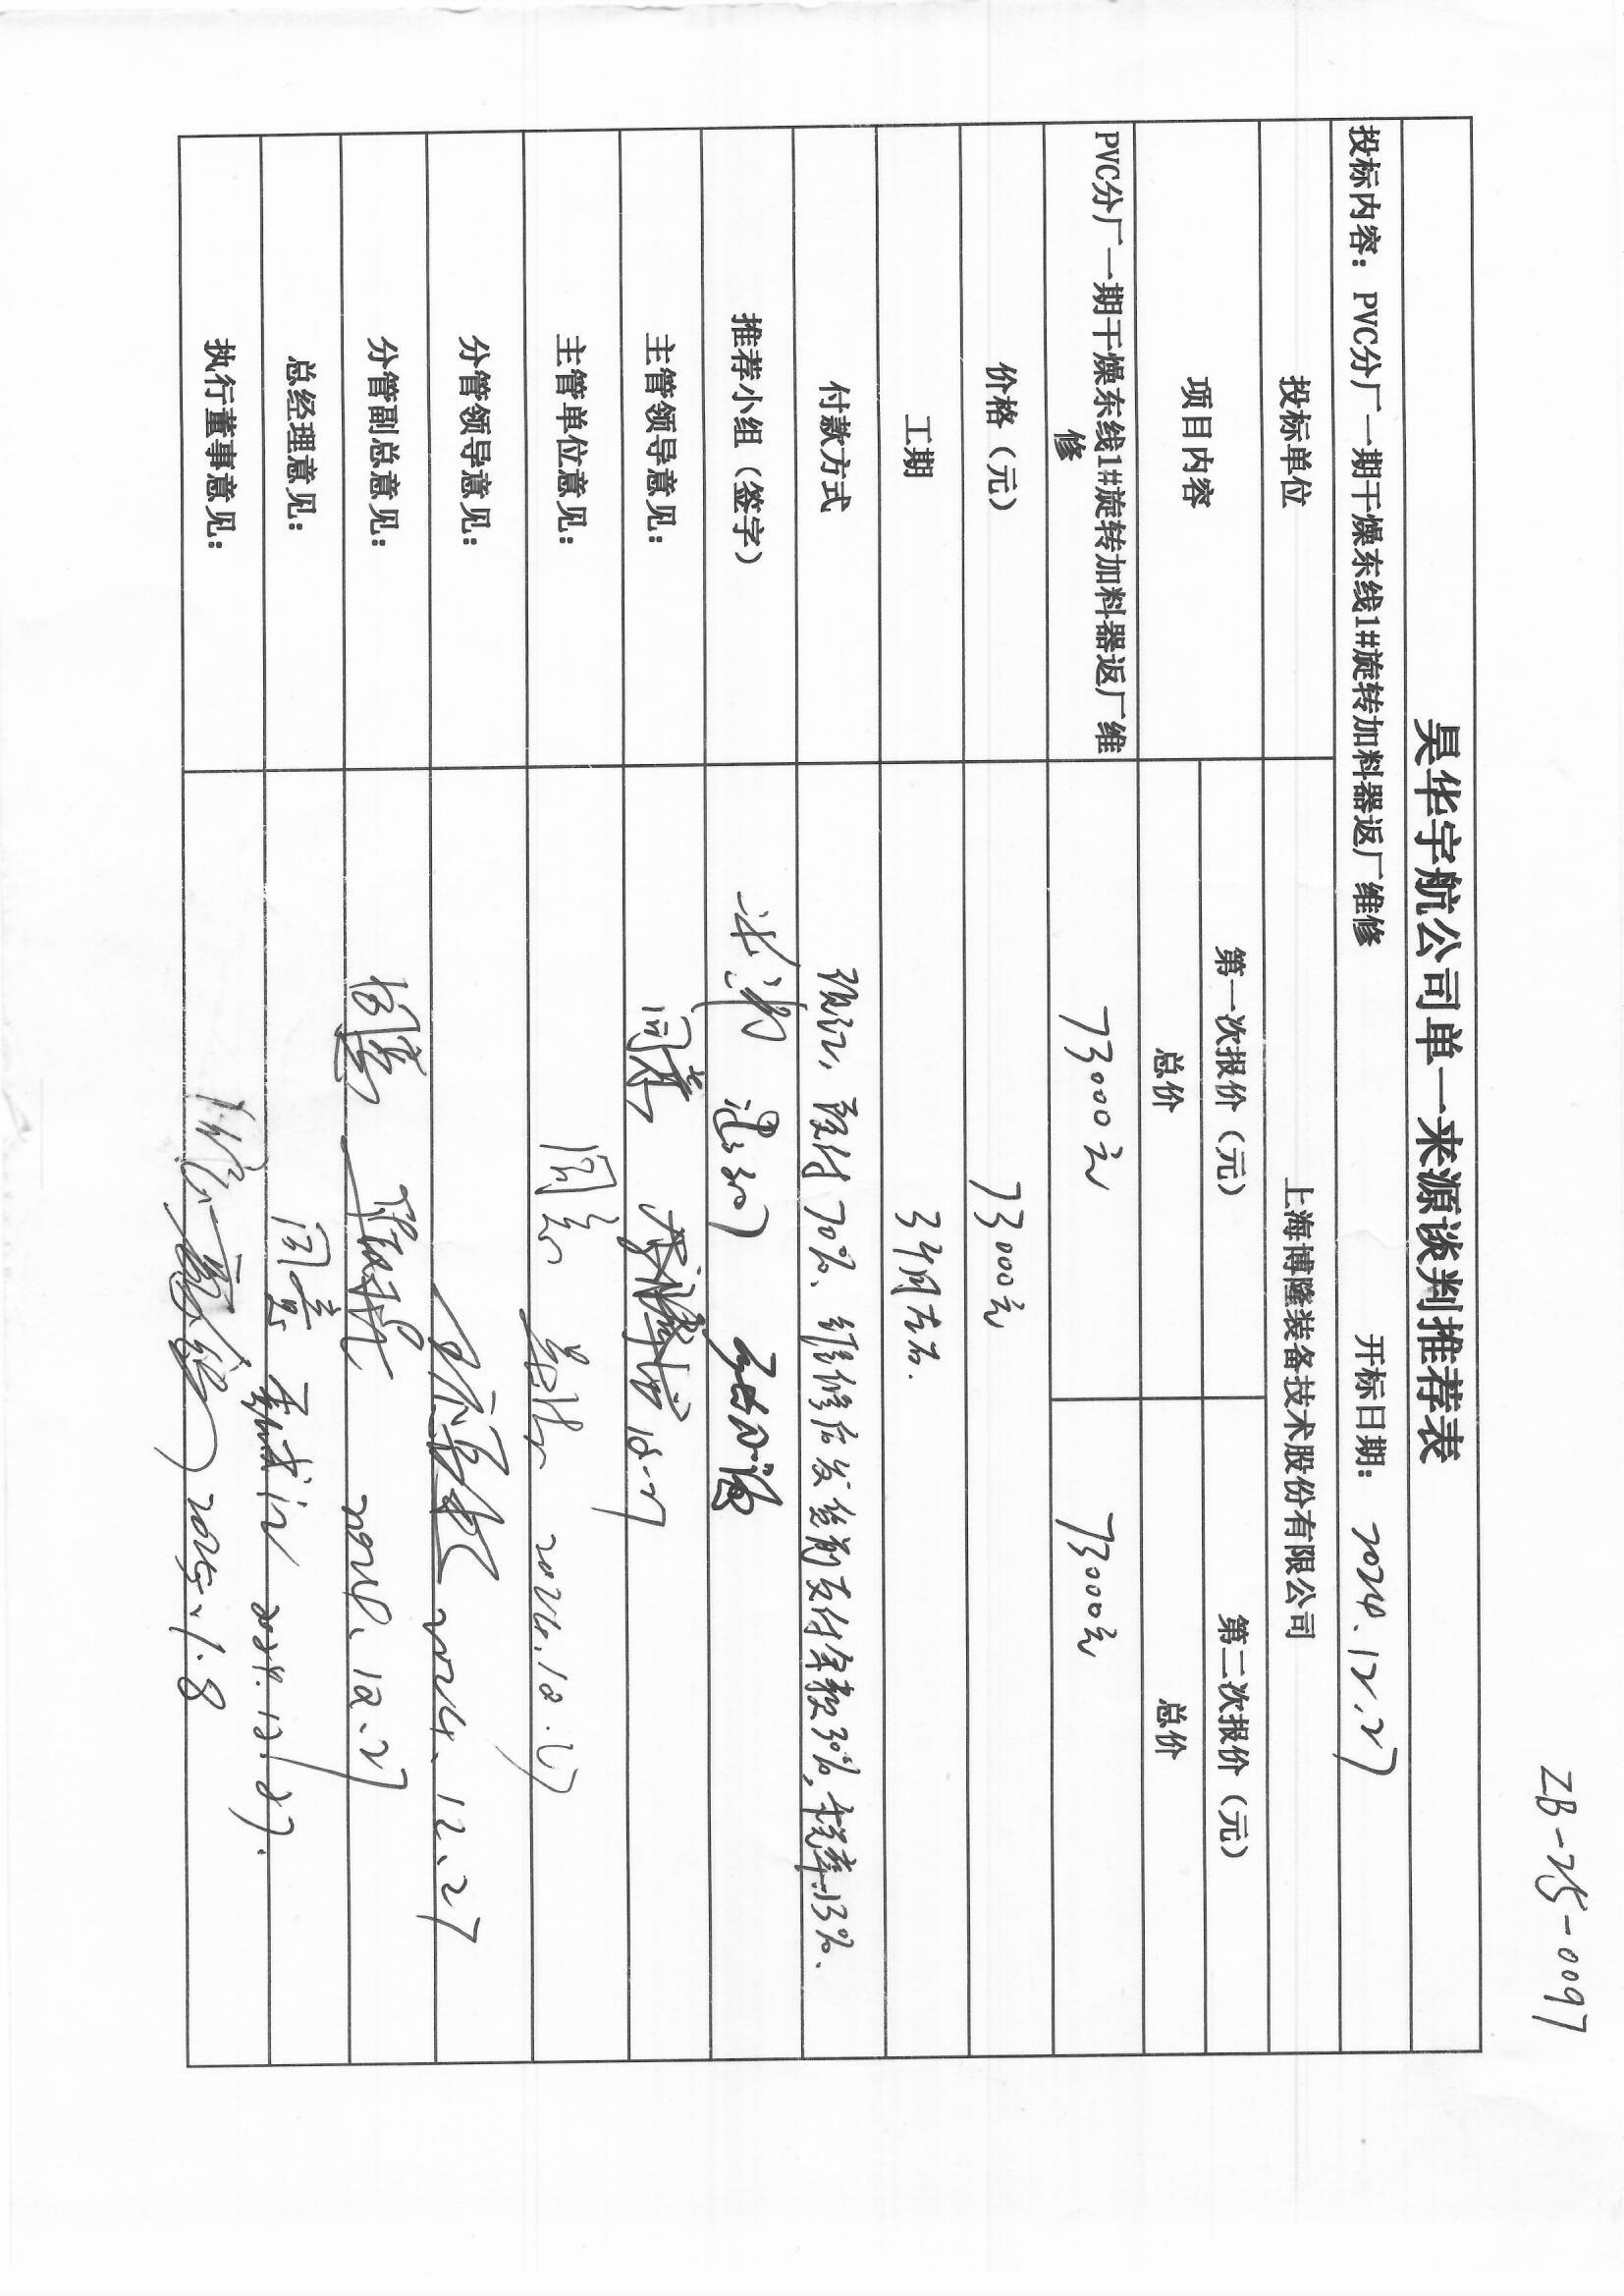 ZB-25-0097
昊华宇航公司单一来源谈判推荐表
投标内容：PVC分厂一期干燥东线1#旋转加料器返厂维修 开标日期： 2024.12.27
投标单位 上海博隆装备技术股份有限公司
项目内容 第一次报价（元） 第二次报价（元）
总价 总价
PVC分厂一期干燥东线1#旋转加料器返厂维修 73000元 73000元
价格（元） 73000元
工期 3个月左右.
付款方式 预付70%、维修后发货前支付余款30%,税率13%、
推荐小组（签字）
主管领导意见： 同意 12-27
主管单位意见： 同意 2024.12.27
分管领导意见： 2024.12.27
分管副总意见： 2024.12.27
总经理意见： 同意 2024.12.27.
执行董事意见： 2025.1.8